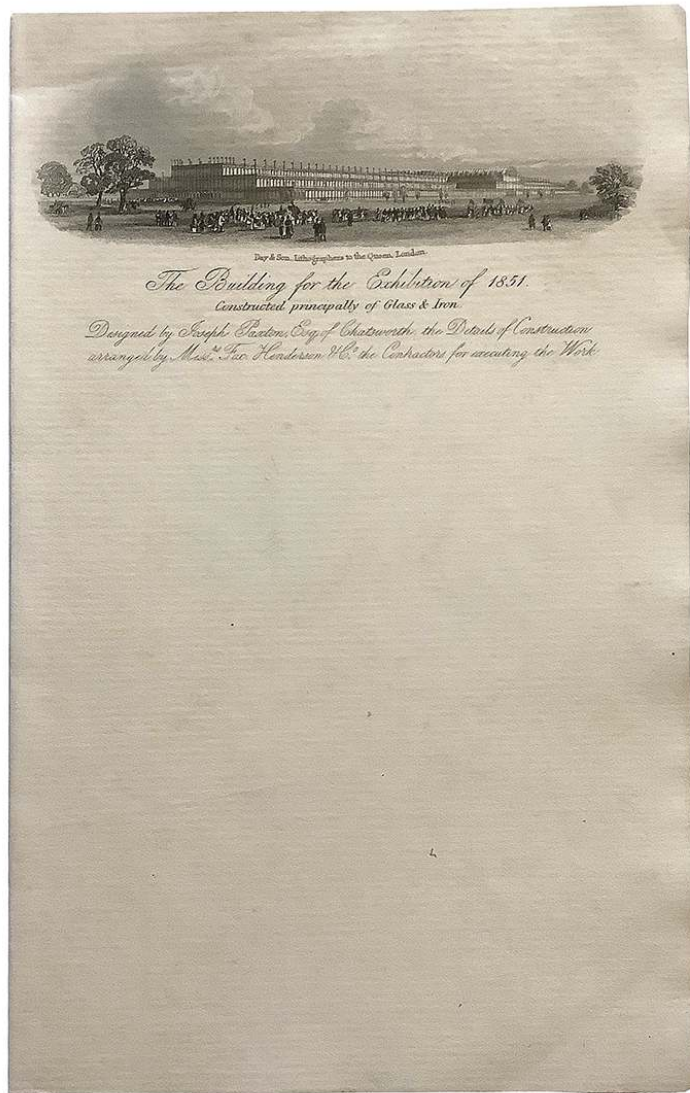 Day & Son, Lithographers to the Queen, London.
The Building for the Exhibition of 1851.
Constructed principally of Glass & Iron
Designed by Joseph Paxton, Esq. of Chatsworth, the Details of Construction
arranged by Mess.rs Fox Henderson & C.o the Contractors for executing the Work